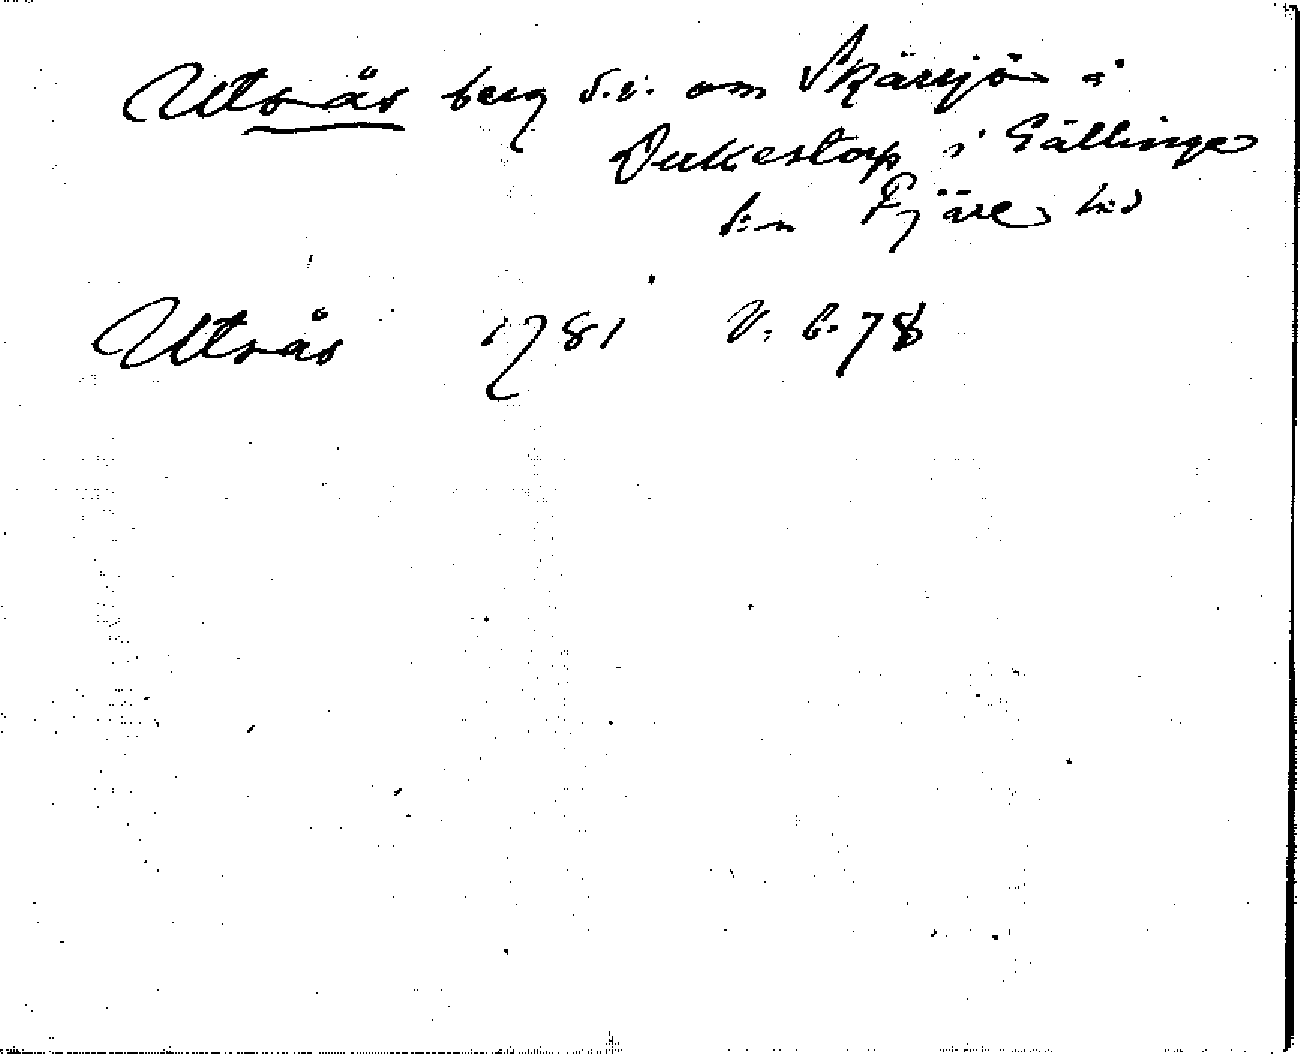 Utrås berg s.v. om Skärsjön i
Dukestorp i Gällinge
s:n Fjäre hd
Utrås 1781 V. b. 78